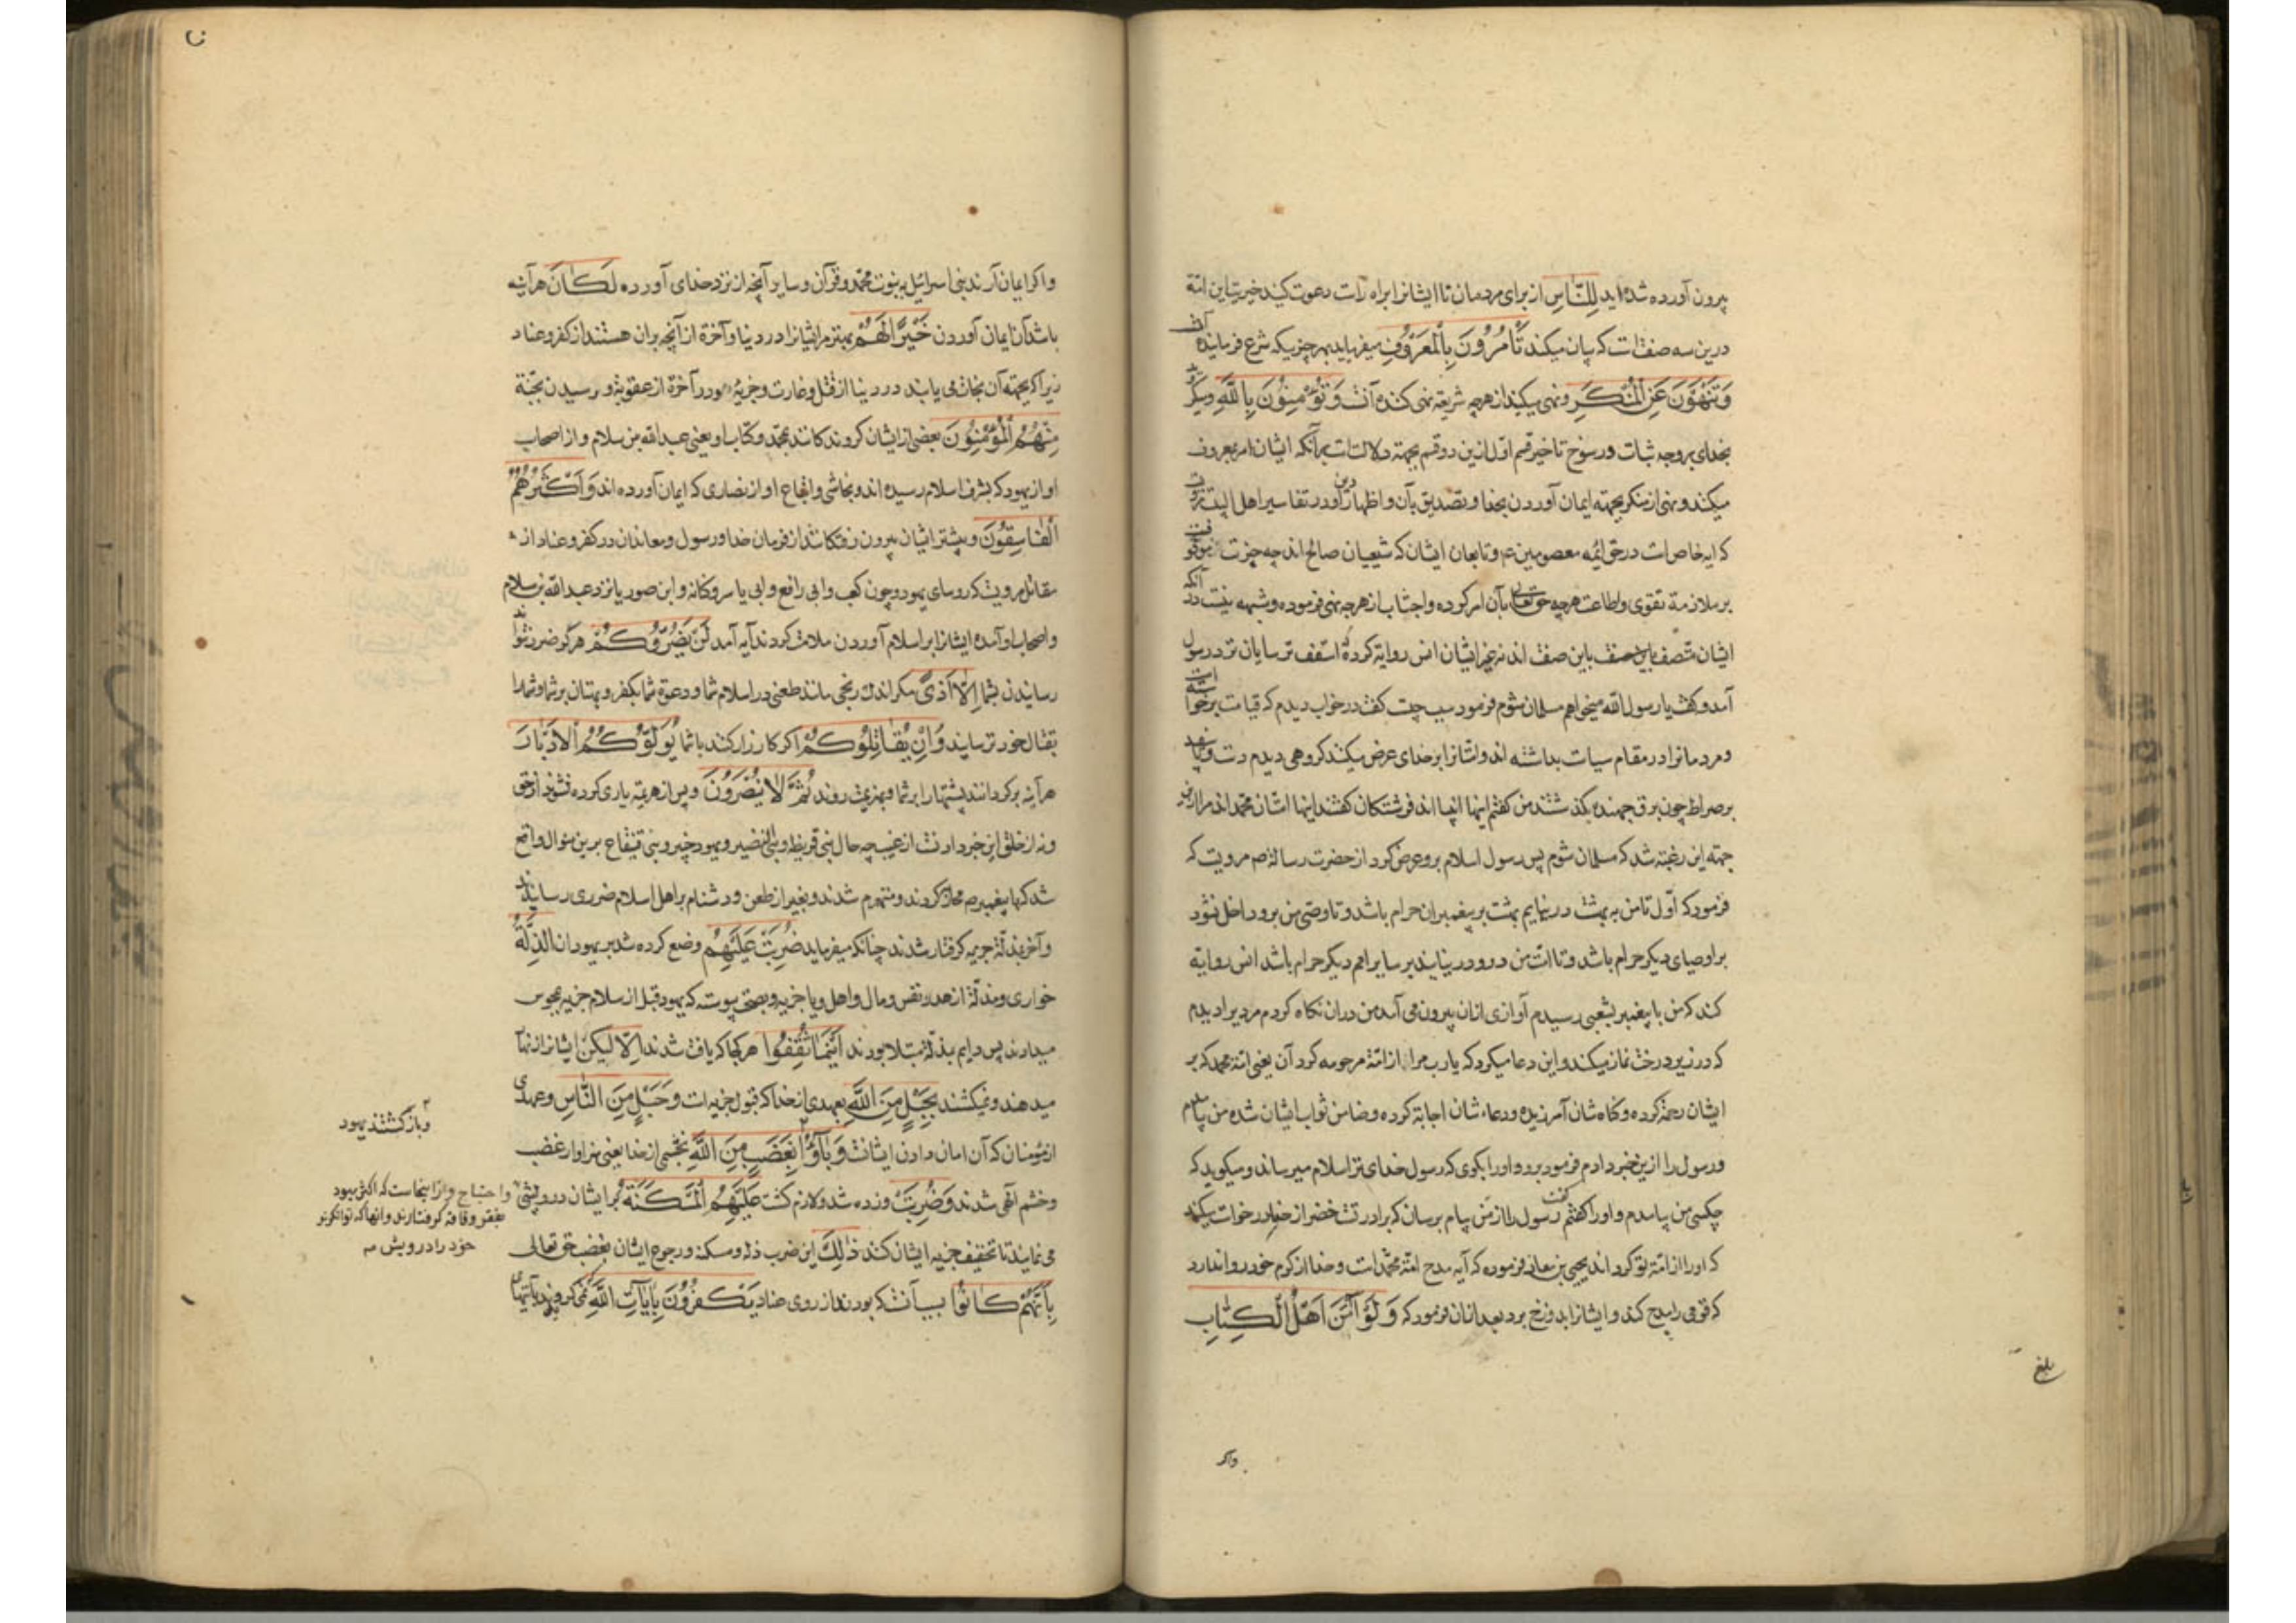 بیرون آورده شده‌اید لِلنَّاسِ از برای مردمان تا ایشانرا براه راست دعوت کنید خیریت این امّة
درین سه صفتست که بیان میکند تَأْمُرُونَ بِالْمَعْرُوفِ میفرماید بهر چیزیکه شرع فرماینده آنست
وَتَنْهَوْنَ عَنِ الْمُنْكَرِ ونهی میکنید از هرچه شریعة نهی کننده آنست وَتُؤْمِنُونَ بِاللَّهِ ومیکروید
بخدای بروجه ثبات ورسوخ تاخیر قسم اوّل ازین دو قسم بجهة دلالتست برآنکه ایشان امر بمعروف
میکند ونهی از منکر بجهته ایمان آوردن بخدا وتصدیق بآن واظهار دین او در تفاسیر اهل البیت
که ایه خاص است در حق ائمه معصومین ع وتابعان ایشان که شیعیان صالح اند چه
بر ملازمة تقوی واطاعت هرچه حق تعالی بآن امر کرده واجتناب از هرچه نهی فرموده وشبهه نیست در آنکه
ایشان متّصف باین صفت اند نه غیر ایشان انس روایة کرده که اسقف ترسایان نزد رسول
آمد وکفت یا رسول الله میخواهم مسلمان شوم فرمود سبب چیست کفت در خواب دیدم که قیامت برخواسته است
ومردمانرا در مقام سیاست بداشته اند وایشانرا بر خدای عرض میکنند کروهی دیدم دست وپا سفید
بر صراط چون برق جهنده بکذشتند من کفتم اینها انبیا اند فرشتکان کفتند اینها امّتان محمّد اند مرا ازین
جهته این رغبة شد که مسلمان شوم پس رسول اسلام برو عرض کرد از حضرت رسالة ص مرویست که
فرمود که اوّل تا من به بهشت در نیایم بهشت بر پیغمبران حرام باشد وتا وصی من برو داخل نشود
بر اوصیای دیکر حرام باشد وتا امّت من درو در نیایند بر سایر امم دیکر حرام باشد انس روایة
کند که من با پیغمبر بشعبی رسیدم آوازی از ان بیرون می آمد من دران نکاه کردم مردیرا دیدم
که در زیر درخت نماز میکند واین دعا میکرد که یا رب مرا از امّة مرحومه کردان یعنی امّة محمد که بر
ایشان رحمة کرده وکناه شان آمرزیده ودعاء شان اجابة کرده وضامن ثواب ایشان شده من بیامدم
ورسول را ازین خبر دادم فرمود برو واورا بکوی که رسول خدای ترا سلام میرساند ومیکوید که
چکسی من بیامدم واورا کفتم کفت رسول را از من پیام برسان که برادرت خضر از خدا درخواست میکند
که اورا از امّة تو کرداند یحیی بن معاذ فرموده که آیه مدح امّة محمّد است وخدا از کرم خود روا ندارد
که قومی را مدح کند وایشانرا بدوزخ برد بعد ازان فرمود که وَلَوْ آمَنَ أَهْلُ الْكِتَابِ
بلغ
واکر
واکر ایمان آرند بنی اسرائیل به نبوت محمّد وقرآن وسایر آنچه از نزد خدای آورده لَكَانَ هرآینه
باشد آن ایمان آوردن خَيْرًا لَهُمْ بهتر مر ایشانرا در دنیا وآخرة از آنچه بران هستند از کفر وعناد
زیرا که بجهته آن نجات می یابند در دنیا از قتل وغارت وجزیه ودر آخرة از عقوبة ورسیدن بجنّة
مِنْهُمُ الْمُؤْمِنُونَ بعضی از ایشان کروندکانند بمحمّد وکتاب او یعنی عبد الله بن سلام واز اصحاب
او از یهود که بشرف اسلام رسیده اند ونجاشی واتباع او از نصاری که ایمان آورده اند وَأَكْثَرُهُمُ
الْفَاسِقُونَ وبیشتر ایشان بیرون رفتکانند از فرمان خدا ورسول ومعاندان در کفر وعناد از
مقاتل مرویست که رؤسای یهود چون کعب وابی رافع وابی یاسر وکنانه وابن صوریا نزد عبد الله بن سلام
واصحاب او آمده ایشانرا بر اسلام آوردن ملامت کردند آیه آمد لَنْ يَضُرُّوكُمْ هرکز ضرر نتوانند
رسانیدن بشما إِلَّا أَذًى مکر اندک رنجی مانند طعنی در اسلام شما ودعوة شما بکفر وبهتان بر شما وشما را
بقتال خود ترسانید وَإِنْ يُقَاتِلُوكُمْ اکر کارزار کنند با شما يُوَلُّوكُمُ الْأَدْبَارَ
هرآینه برکردانند پشتها را بر شما وبهزیمت روند ثُمَّ لَا يُنْصَرُونَ وپس از هزیمة یاری کرده نشوند از حق
ونه از خلق این خبر دادنست از غیب چه حال بنی قریظه وبنی النضیر ویهود خیبر وبنی قینقاع برین منوال واقع
شد که با پیغمبر ص محاربه کردند ومنهزم شدند وبغیر از طعن ودشنام بر اهل اسلام ضرری نرسانیدند
وآخر بمذلّة جزیه کرفتار شدند چنانکه میفرماید ضُرِبَتْ عَلَيْهِمُ وضع کرده شد بر یهودان الذِّلَّةُ
خواری ومذلّة از هدر نفس ومال واهل ویا جزیه وبصحّت پیوسته که یهود قبل از اسلام جزیه بمجوس
میدادند پس دایم بذلّة مبتلا بودند أَيْنَمَا ثُقِفُوا هر کجا که یافت شدند إِلَّا لیکن ایشانرا زنهار
میدهند ونمیکشند بِحَبْلٍ مِنَ اللَّهِ بعهدی از خدا که قبول جزیه است وَحَبْلٍ مِنَ النَّاسِ وعهدی
از مؤمنان که آن امان دادن ایشانست وَبَاءُوا بِغَضَبٍ مِنَ اللَّهِ بخشمی از خدا یعنی سزاوار غضب
وخشم الهی شدند وَضُرِبَتْ وزده شد ولازم کشت عَلَيْهِمُ الْمَسْكَنَةُ بر ایشان درویشی
می نمایند تا تخفیف جزیه ایشان کنند ذَلِكَ این ضرب ذلّة ومسکنة ورجوع ایشان بغضب حق تعالی
بِأَنَّهُمْ كَانُوا بسبب آنست که بودند از روی عناد يَكْفُرُونَ بِآيَاتِ اللَّهِ نمی کرویدند بآیتهای
وبازکشتند یهود
واحتیاج واز اینجاست که اکثر یهود
بفقر وفاقه کرفتارند وآنها که توانکرند
خود را درویش